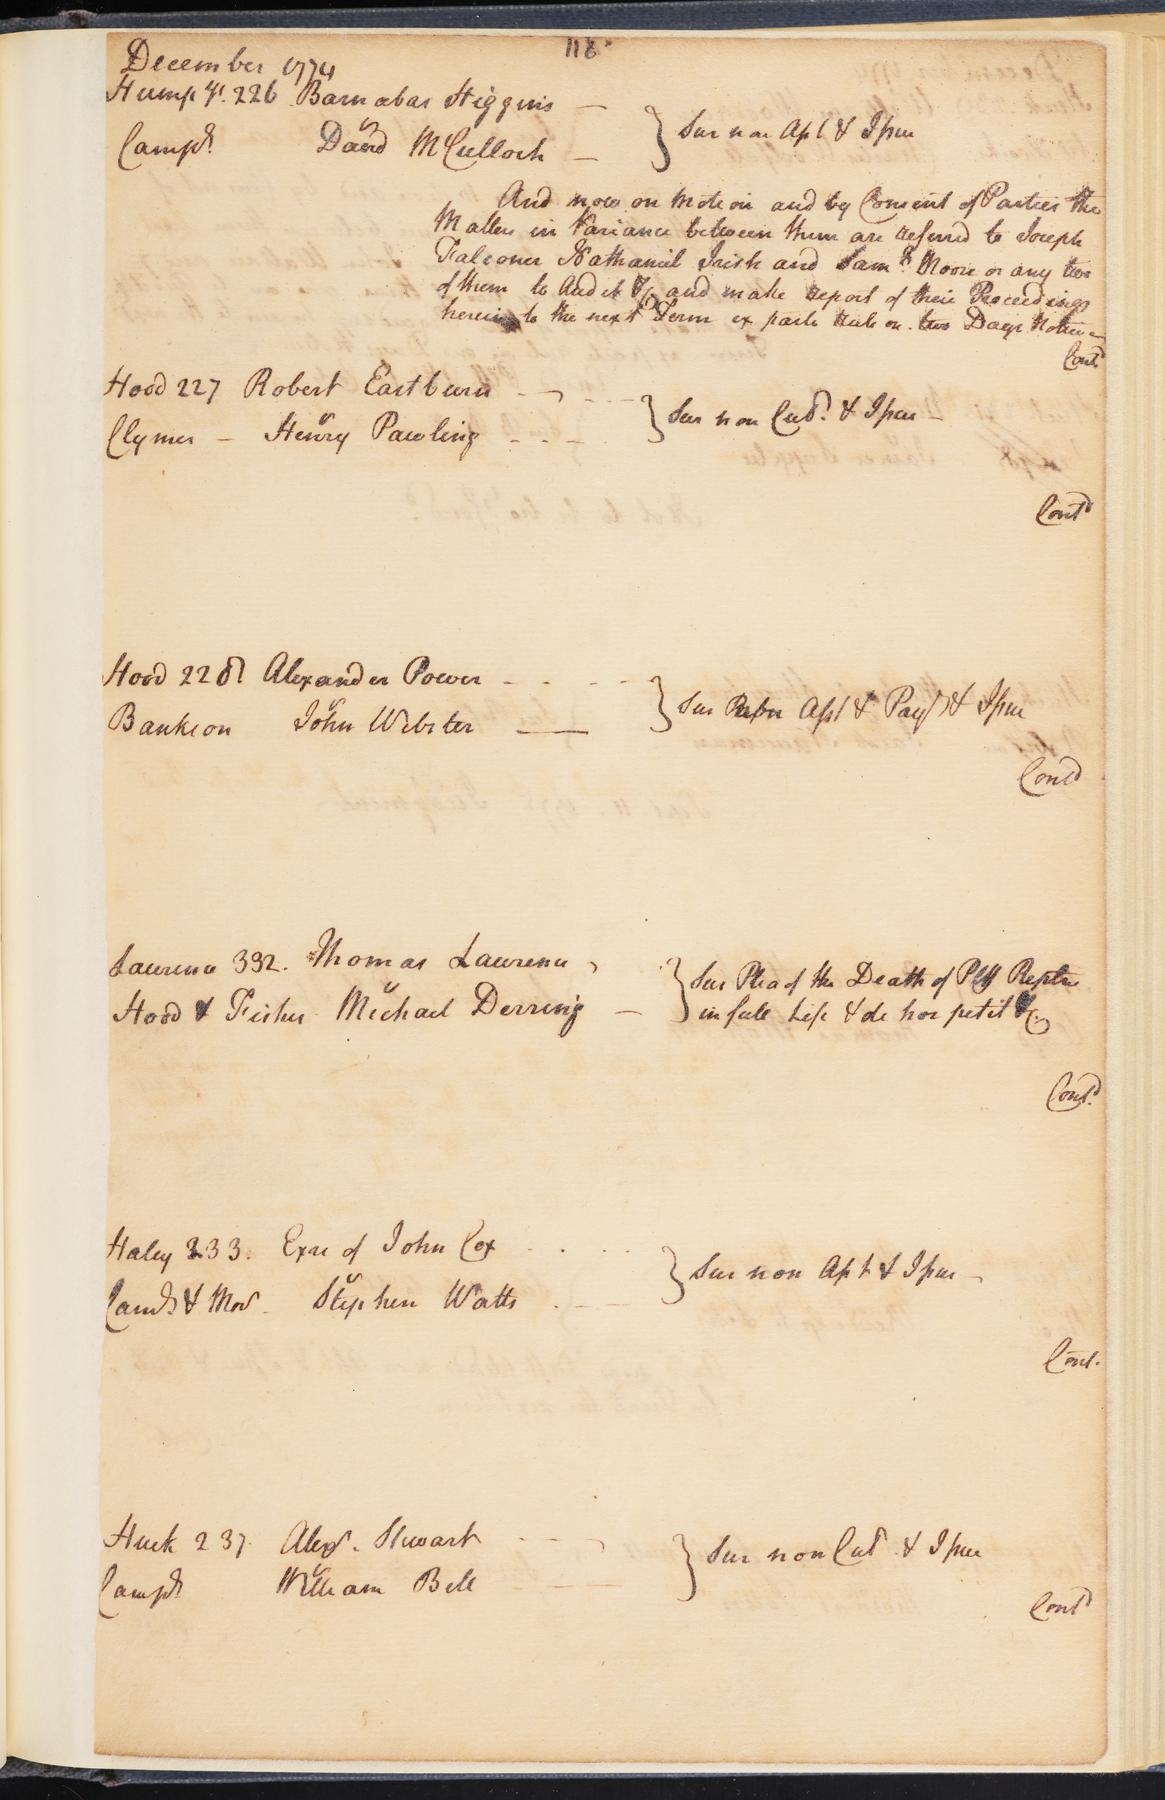 118
December 1774
Humpys. 226 Barnabas Higgins —
Campl. David McCulloch — } Sur non Apt & Issue
vs
And now on Motion and by Consent of Parties the
Matters in Variance between them are referred to Joseph
Falconer Nathaniel Irish and Saml. Moore or any two
of them to Audit &c and make report of their Proceedings
herein to the next Term ex parte Rule on two Days Notice
Contd
Hood 227 Robert Eastburn
vs
Clymer — Henry Pawling } Sur non Cul. & Issue —
Contd
Hood 228 Alexander Power
vs
Bankson John Webster — } Sur Apt & Payt & Issue
Contd
Lawrence 332. Thomas Lawrence
vs
Hood & Fisher Michael Derring — } Sur Plea of the Death of Plff Repln
in full Life & de hoc petit &c.
Contd.
Haley 333. Exrs of John Cox
vs
& Mor. Stephen Watts } Sur non Apt & Issue —
Cont.
Huck 237 Alexr. Stewart
vs
Campl. William Bell } Sur non Cul. & Issue
Contd